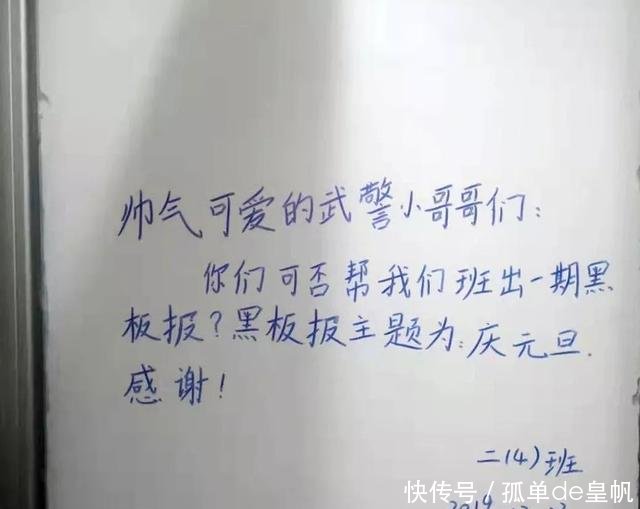 帅气可爱的武警小哥哥们:
你们可否帮我们班出一期黑
板报?黑板报主题为:庆元旦.
感谢!
二(4)班
快传号/孤单de皇帆